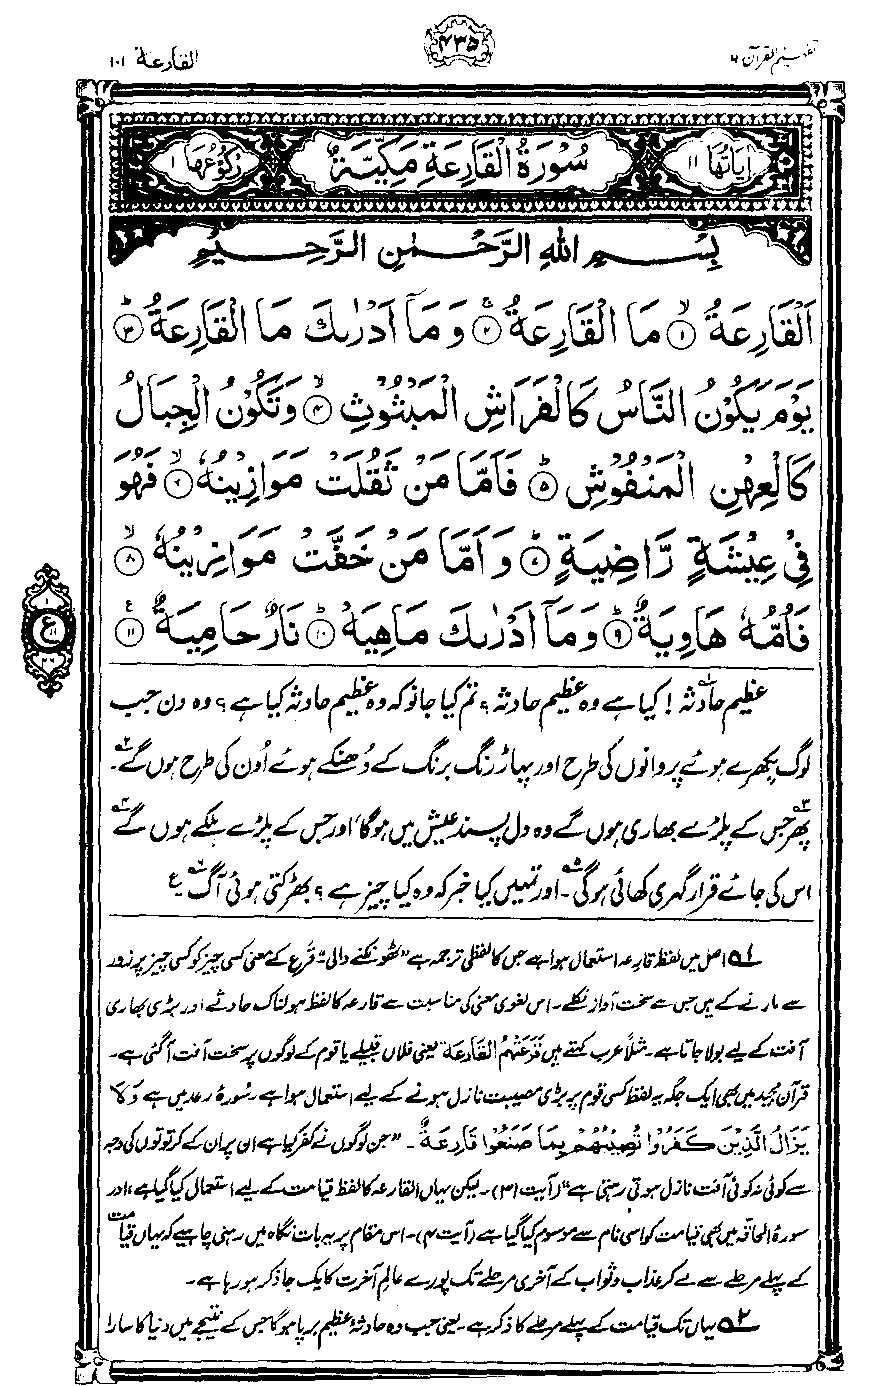 تفہیم القرآن ۶
۴۳۵
القارعة ۱۰۱
اٰيَاتُهَا ۱۱
سُوْرَةُ الْقَارِعَةِ مَكِّيَّةٌ
رُكُوْعُهَا ۱
بِسْمِ اللّٰهِ الرَّحْمٰنِ الرَّحِيْمِ
اَلْقَارِعَةُ ۙ﴿۱﴾ مَا الْقَارِعَةُ ۚ﴿۲﴾ وَمَاۤ اَدْرٰىكَ مَا الْقَارِعَةُ ؕ﴿۳﴾
يَوْمَ يَكُوْنُ النَّاسُ كَالْفَرَاشِ الْمَبْثُوْثِ ۙ﴿۴﴾ وَتَكُوْنُ الْجِبَالُ
كَالْعِهْنِ الْمَنْفُوْشِ ؕ﴿۵﴾ فَاَمَّا مَنْ ثَقُلَتْ مَوَازِيْنُهٗ ۙ﴿۶﴾ فَهُوَ
فِيْ عِيْشَةٍ رَّاضِيَةٍ ؕ﴿۷﴾ وَاَمَّا مَنْ خَفَّتْ مَوَازِيْنُهٗ ۙ﴿۸﴾
فَاُمُّهٗ هَاوِيَةٌ ؕ﴿۹﴾ وَمَاۤ اَدْرٰىكَ مَاهِيَهْ ؕ﴿۱۰﴾ نَارٌ حَامِيَةٌ ﴿۱۱﴾
ع
عظیم حادثہ! کیا ہے وہ عظیم حادثہ؟ تم کیا جانو کہ وہ عظیم حادثہ کیا ہے؟ وہ دن جب
لوگ بکھرے ہوئے پروانوں کی طرح اور پہاڑ رنگ برنگ کے دُھنکے ہوئے اُون کی طرح ہوں گے۲۔
پھر۳ جس کے پلڑے بھاری ہوں گے وہ دل پسند عیش میں ہوگا، اور جس کے پلڑے ہلکے ہوں گے۴
اس کی جائے قرار گہری کھائی ہوگی۵۔ اور تمہیں کیا خبر کہ وہ کیا چیز ہے؟ بھڑکتی ہوئی آگ۶ ع
۱ اصل میں لفظ قارعہ استعمال ہوا ہے جس کا لفظی ترجمہ ہے "ٹھونکنے والی"۔ قَرع کے معنی کسی چیز کو کسی چیز پر زور
سے مارنے کے ہیں جس سے سخت آواز نکلے۔ اس لغوی معنی کی مناسبت سے قارعہ کا لفظ ہولناک حادثے اور بڑی بھاری
آفت کے لیے بولا جاتا ہے۔ مثلاً عرب کہتے ہیں قَرَعَتْهُمُ القَارِعَة یعنی فلاں قبیلے یا قوم کے لوگوں پر سخت آفت آ گئی ہے۔
قرآن مجید میں بھی ایک جگہ یہ لفظ کسی قوم پر بڑی مصیبت نازل ہونے کے لیے استعمال ہوا ہے۔ سُورۂ رعد میں ہے وَلَا
يَزَالُ الَّذِيْنَ كَفَرُوْا تُصِيْبُهُمْ بِمَا صَنَعُوْا قَارِعَةٌ۔ "جن لوگوں نے کفر کیا ہے ان پر ان کے کرتوتوں کی وجہ
سے کوئی نہ کوئی آفت نازل ہوتی رہتی ہے" (آیت ۳۱)۔ لیکن یہاں القارعہ کا لفظ قیامت کے لیے استعمال کیا گیا ہے، اور
سورۂ الحاقہ میں بھی قیامت کو اسی نام سے موسوم کیا گیا ہے (آیت ۴)۔ اس مقام پر یہ بات نگاہ میں رہنی چاہیے کہ یہاں قیامت
کے پہلے مرحلے سے لے کر عذاب و ثواب کے آخری مرحلے تک پورے عالمِ آخرت کا یک جا ذکر ہو رہا ہے۔
۲ یہاں تک قیامت کے پہلے مرحلے کا ذکر ہے۔ یعنی جب وہ حادثۂ عظیم برپا ہوگا جس کے نتیجے میں دنیا کا سارا